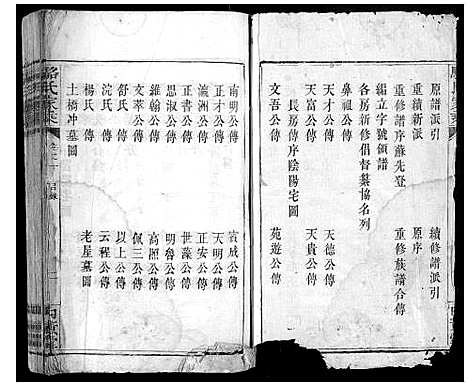 原譜派引　續修譜派引
重續新派　原序
重修譜序蘇先登　重修族譜合傳
編立字號領譜
各房新修倡督纂協名列
鼻祖公傳　天德公傳
天富公傳　天貴公傳
長房傳序陰陽宅圖
文吾公傳　苑遊公傳
南明公傳　賓威公傳
正才公傳　天明公傳
瀛洲公傳　正安公傳
正書公傳　世藻公傳
思淑公傳　明魯公傳
維翰公傳　高陞公傳
文萃公傳　佩三公傳
舒氏傳　以上公傳
浣氏傳　云程公傳
楊氏傳　老屋墓圖
土橋冲墓圖